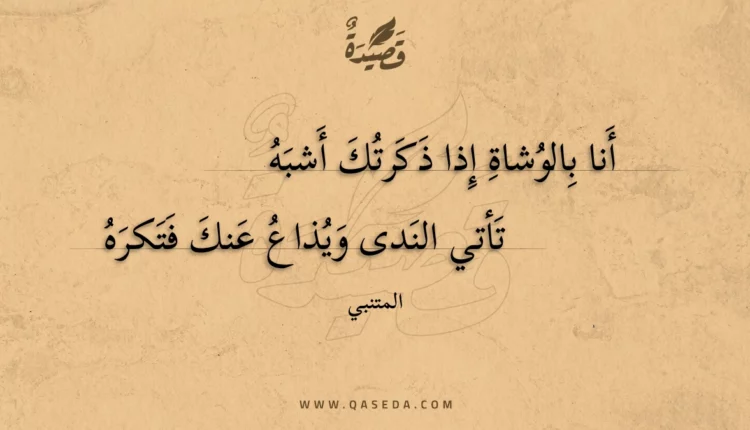 قَصِيْدَةٌ
أَنا بِالوُشاةِ إِذا ذَكَرتُكَ أَشبَهُ
تَأتي النَدى وَيُذاعُ عَنكَ فَتَكرَهُ
المتنبي
WWW.QASEDA.COM